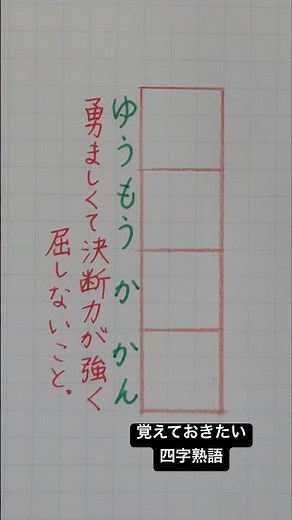 ゆうもうかかん
勇ましくて決断力が強く
屈しないこと。
覚えておきたい
四字熟語